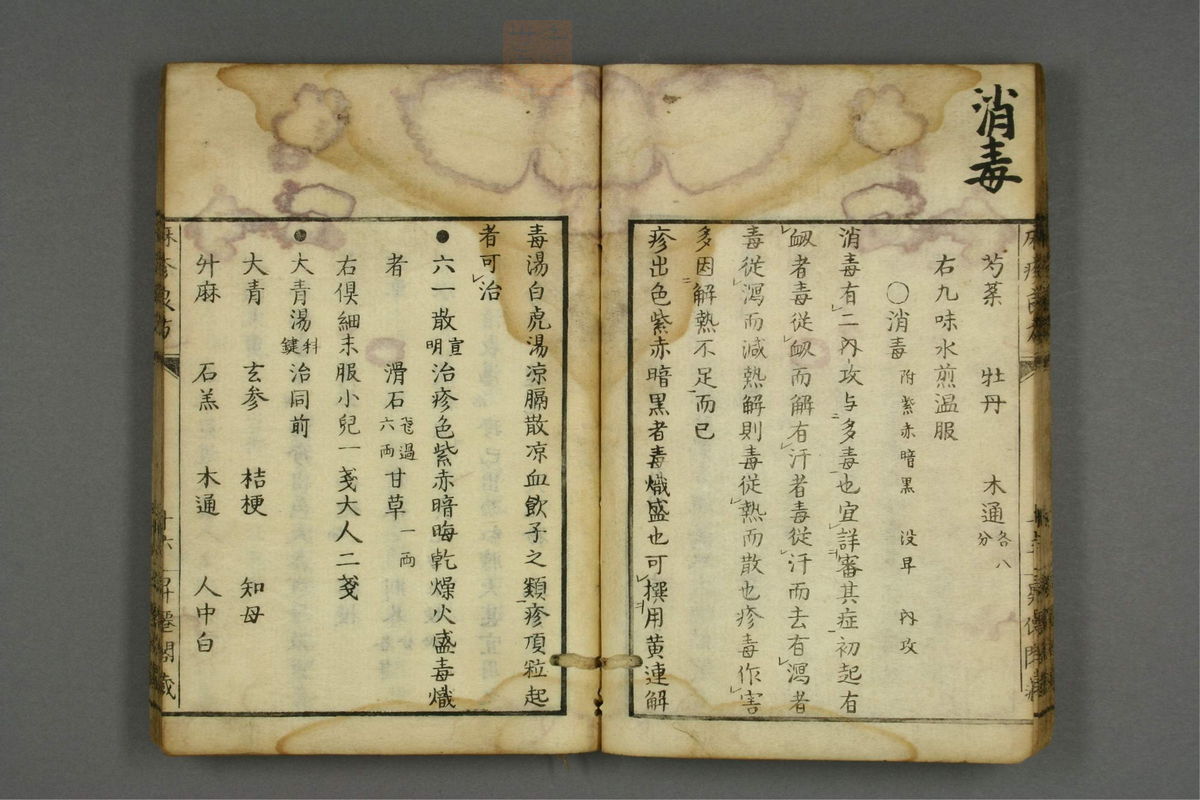 消毒
芍薬 牡丹 木通各八分
右九味水煎温服
○消毒 附紫赤暗黒 没早 內攻
消毒有二內攻与多毒也宜詳審其症初起有
衂者毒従衂而解有汗者毒従汗而去有瀉者
毒従瀉而減熱解則毒従熱而散也疹毒作害
多因解熱不足而已
疹出色紫赤暗黒者毒熾盛也可撰用黄連解
毒湯白虎湯凉膈散凉血飲子之類疹頂粒起
者可治
●六一散宣明治疹色紫赤暗晦乾燥火盛毒熾
者 滑石飛過六両 甘草一両
右俱細末服小兒一戔大人二戔
●大青湯科鍵治同前
大青 玄参 桔梗 知母
升麻 石羔 木通 人中白